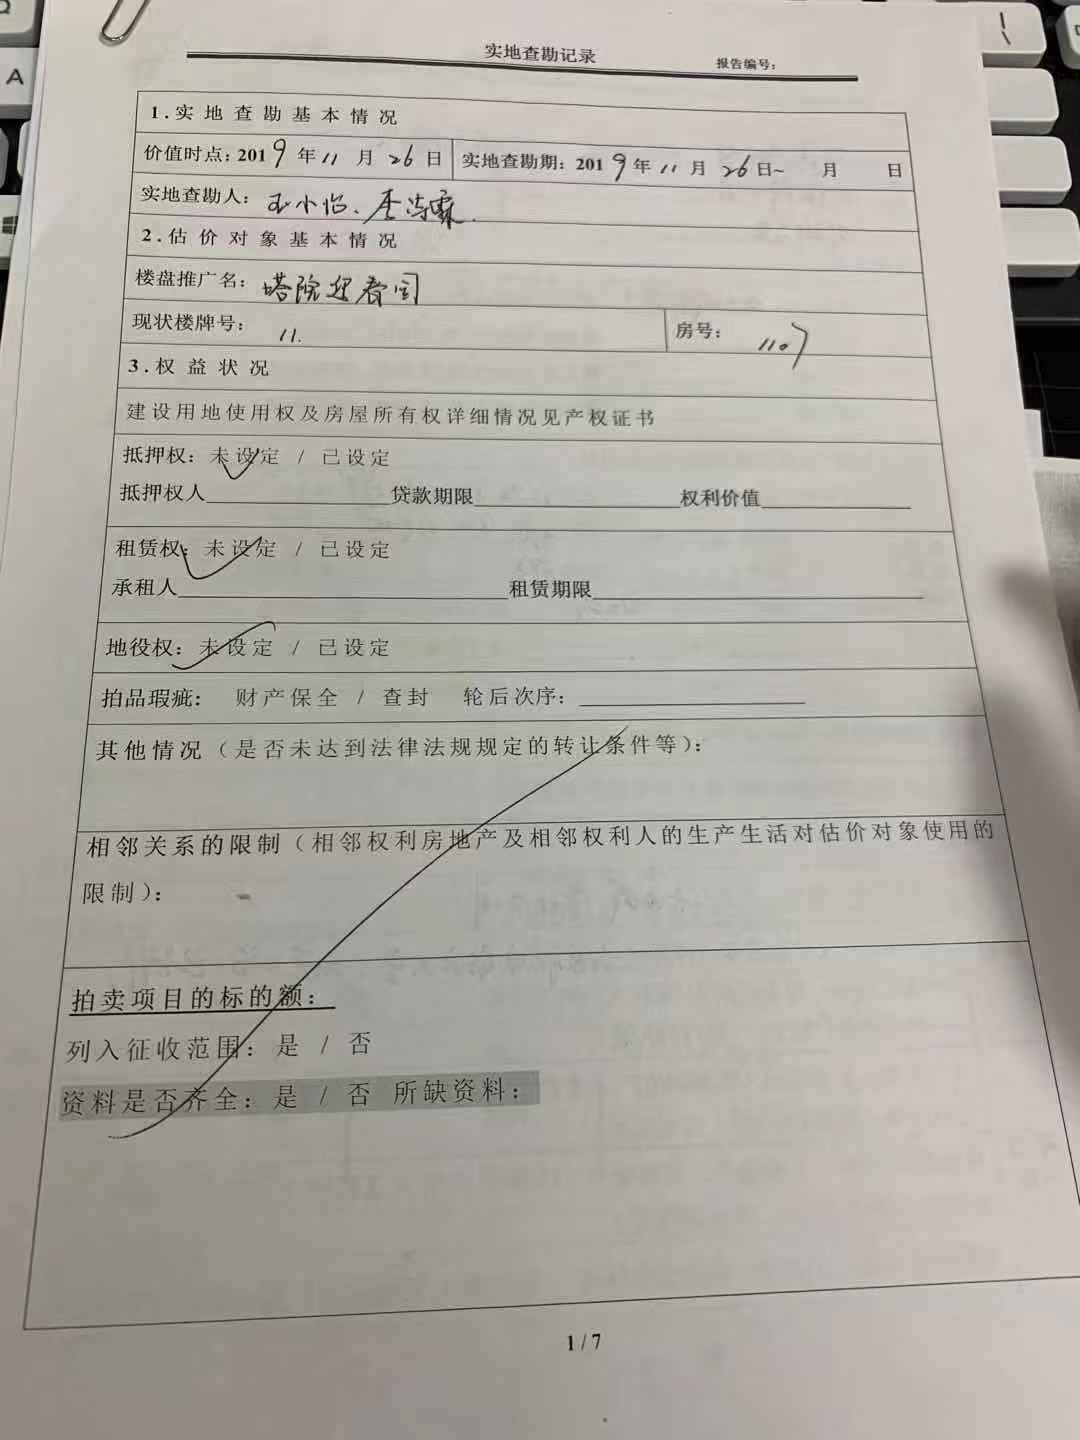 实地查勘记录
报告编号:
1.实地查勘基本情况
价值时点: 2019年11月26日 实地查勘期: 2019年11月26日~ 月 日
实地查勘人: 王小怡、李
2.估价对象基本情况
楼盘推广名: 塔院迎春园
现状楼牌号: 11. 房号: 1107
3.权益状况
建设用地使用权及房屋所有权详细情况见产权证书
抵押权: 未设定 / 已设定
抵押权人 贷款期限 权利价值
租赁权: 未设定 / 已设定
承租人 租赁期限
地役权: 未设定 / 已设定
拍品瑕疵: 财产保全 / 查封 轮后次序:
其他情况(是否未达到法律法规规定的转让条件等):
相邻关系的限制(相邻权利房地产及相邻权利人的生产生活对估价对象使用的
限制):
拍卖项目的标的额:
列入征收范围: 是 / 否
资料是否齐全: 是 / 否 所缺资料:
1 / 7
A